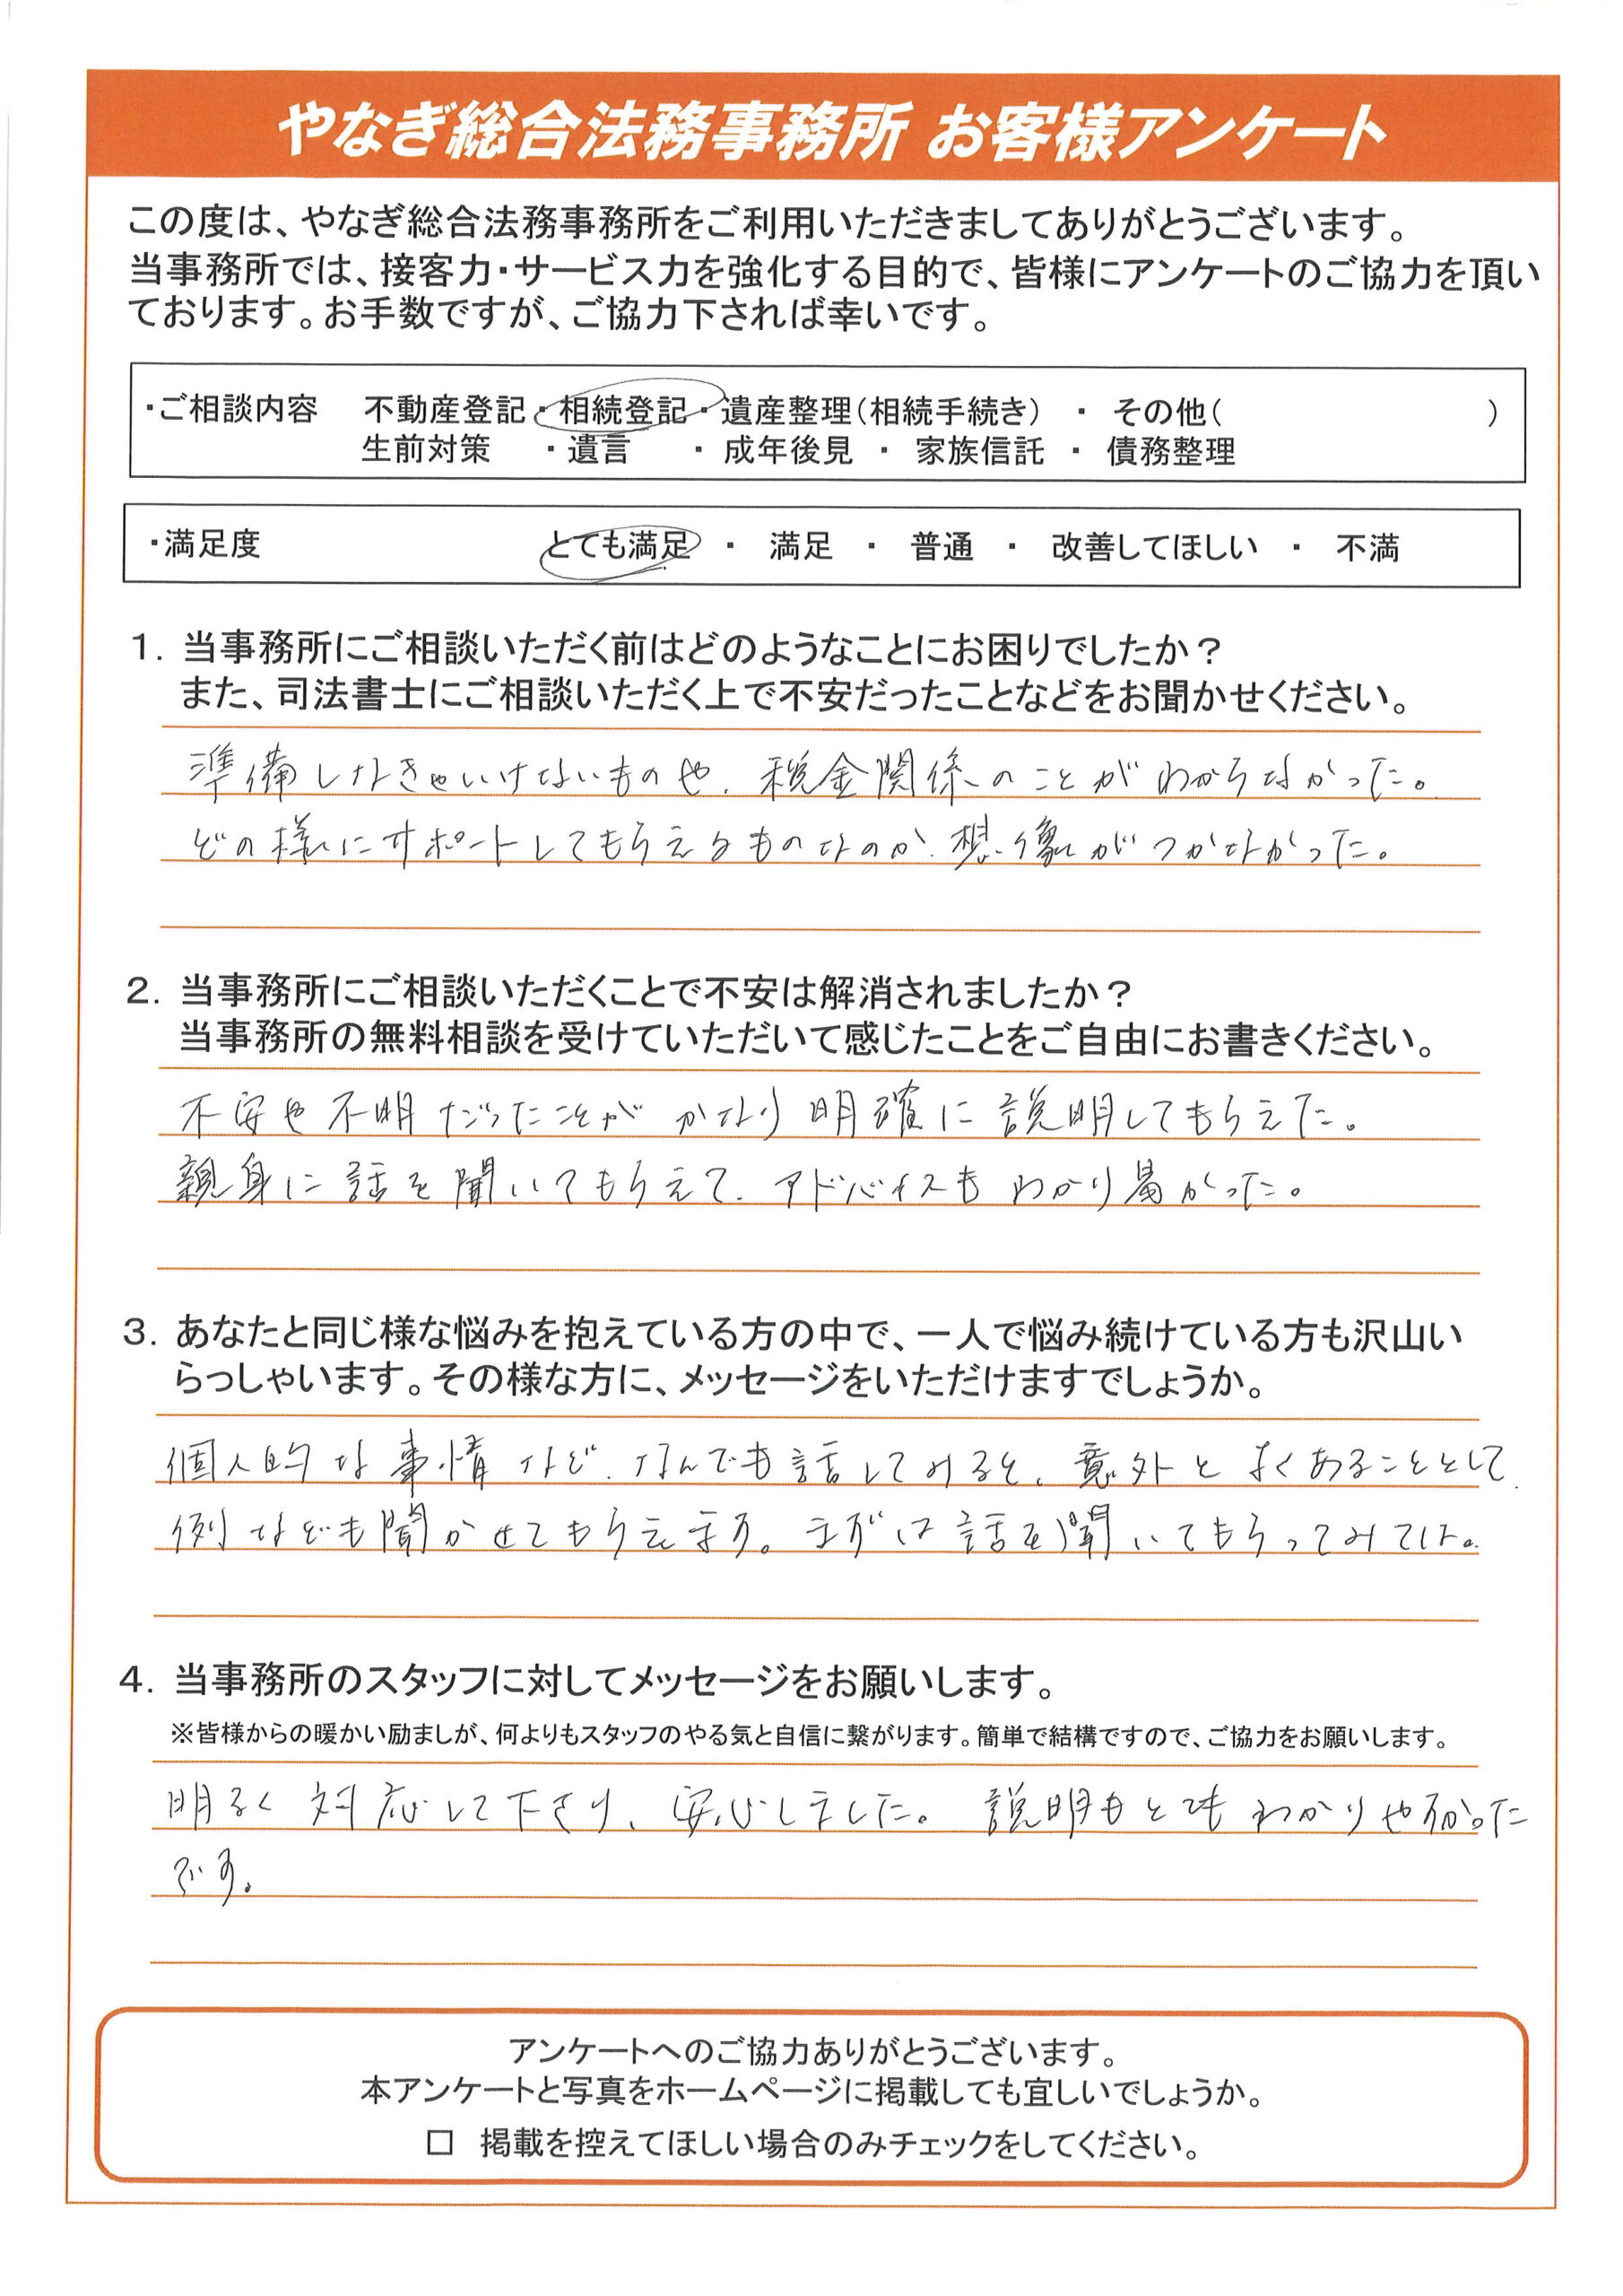 やなぎ総合法務事務所 お客様アンケート
この度は、やなぎ総合法務事務所をご利用いただきましてありがとうございます。
当事務所では、接客力・サービス力を強化する目的で、皆様にアンケートのご協力を頂い
ております。お手数ですが、ご協力下されば幸いです。
・ご相談内容 不動産登記・相続登記・遺産整理(相続手続き) ・ その他( )
生前対策 ・遺言 ・成年後見 ・ 家族信託 ・ 債務整理
・満足度 とても満足 ・ 満足 ・ 普通 ・ 改善してほしい ・ 不満
1. 当事務所にご相談いただく前はどのようなことにお困りでしたか?
また、司法書士にご相談いただく上で不安だったことなどをお聞かせください。
準備しなきゃいけないものや、税金関係のことがわからなかった。
どの様にサポートしてもらえるものなのか、想像がつかなかった。
2. 当事務所にご相談いただくことで不安は解消されましたか?
当事務所の無料相談を受けていただいて感じたことをご自由にお書きください。
不安や不明だったことが かなり明確に説明してもらえた。
親身に話を聞いてもらえて、アドバイスもわかり易かった。
3. あなたと同じ様な悩みを抱えている方の中で、一人で悩み続けている方も沢山い
らっしゃいます。その様な方に、メッセージをいただけますでしょうか。
個人的な事情など、なんでも話してみると、意外とよくあることとして、
例なども聞かせてもらえます。まずは話を聞いてもらってみては。
4. 当事務所のスタッフに対してメッセージをお願いします。
※皆様からの暖かい励ましが、何よりもスタッフのやる気と自信に繋がります。簡単で結構ですので、ご協力をお願いします。
明るく対応して下さり、安心しました。説明もとてもわかりやすかった
です。
アンケートへのご協力ありがとうございます。
本アンケートと写真をホームページに掲載しても宜しいでしょうか。
□ 掲載を控えてほしい場合のみチェックをしてください。